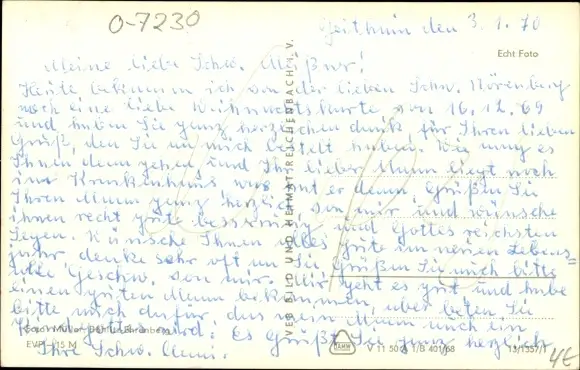 O-7230
Geithain den 3.1.70
Echt Foto
Meine liebe Schw.
Heute bekamm ich von der lieben Schw. Nörenberg
noch eine liebe Weihnachtskarte von 16.12.69
und haben Sie ganz herzlichen dank, für Ihren lieben
Gruß, den Sie an mich bestelt haben. Wie mag es
Ihnen denn gehen, und Ihr lieber Mann liegt noch
im Krankenhaus, was hat er denn Grüßen Sie
Ihren Mann ganz herzlich, von mir und wünsche
ihnen recht gute besserung und Gottes reichsten
Segen. Wünsche Ihnen alles Gute im neuen Lebens=
jahr, denke sehr oft an Sie Grüßen Sie auch bitte
alle Geschw. von mir. Mir geht es gut und habe
einen guten Mann bekommen, aber beten Sie
bitte auch dafür, das mein Mann auch ein
wird. Es Grüßt Sie ganz herzlich
Ihre Schw.
VEB BILD UND HEIMAT REICHENBACH i. V.
V 11 50 A 1/B 401/68
13/1357/1
4€